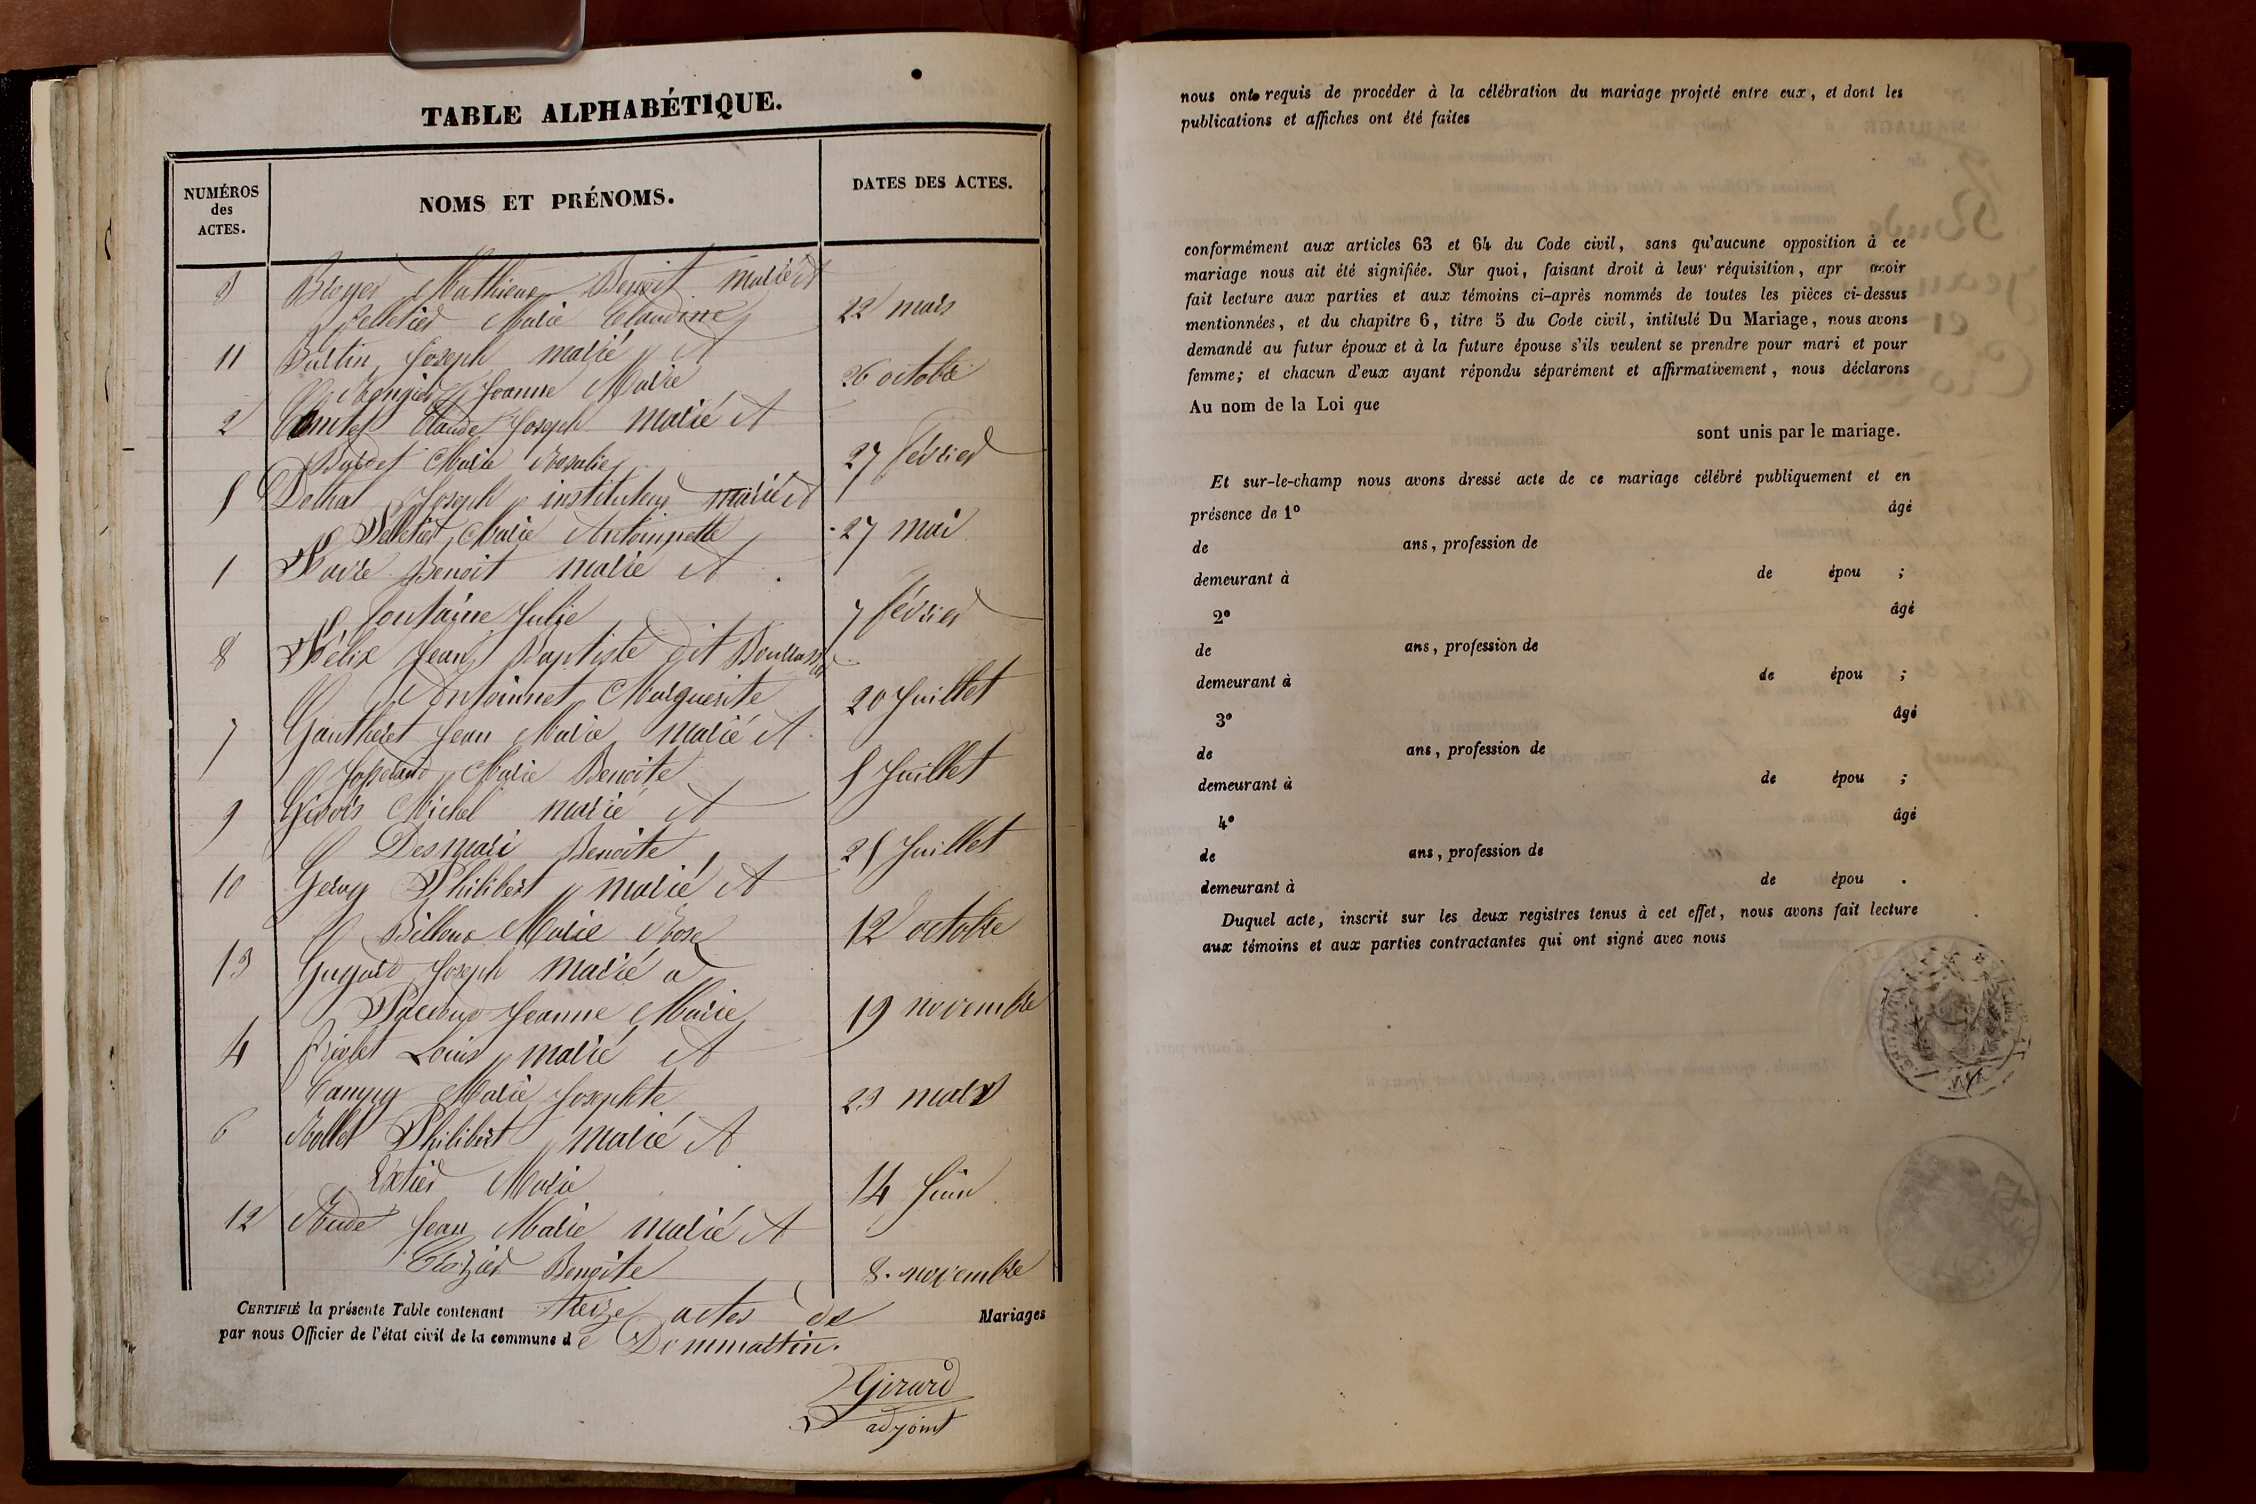 TABLE ALPHABÉTIQUE.
NUMÉROS
des
ACTES.
NOMS ET PRÉNOMS.
DATES DES ACTES.
3 Mathieu Benoit marié à
Pelletier Marie Claudine 22 mars
11 Joseph marié à
Jeanne Marie 26 octobre
2 Claude Joseph marié à
Marie Rosalie 27 février
5 Joseph instituteur marié à
Pelletier Marie Antoinette 27 mai
1 Favre Benoit marié à
Fontaine Julie 7 février
8 Félix Jean Baptiste dit
Antoinnet Marguerite 20 Juillet
7 Gautheret Jean Marie marié à
Josserand Marie Benoite 5 Juillet
9 Michel marié à
Desmari Benoite 25 Juillet
10 Philibert marié à
Billoux Marie Rose 12 octobre
13 Joseph marié à
Paccoud Jeanne Marie 19 novembre
4 Louis marié à
Campy Marie Josephte 23 mars
6 Rollet Philibert marié à
Marie 14 Juin
12 Rude Jean Marie marié à
Benoite 8 novembre
CERTIFIÉ la présente Table contenant treize actes de Mariages
par nous Officier de l'état civil de la commune de Dommartin.
Girard
adjoint
nous ont requis de procéder à la célébration du mariage projeté entre eux, et dont les
publications et affiches ont été faites
conformément aux articles 63 et 64 du Code civil, sans qu'aucune opposition à ce
mariage nous ait été signifiée. Sur quoi, faisant droit à leur réquisition, apr avoir
fait lecture aux parties et aux témoins ci-après nommés de toutes les pièces ci-dessus
mentionnées, et du chapitre 6, titre 5 du Code civil, intitulé Du Mariage, nous avons
demandé au futur époux et à la future épouse s'ils veulent se prendre pour mari et pour
femme; et chacun d'eux ayant répondu séparément et affirmativement, nous déclarons
Au nom de la Loi que
sont unis par le mariage.
Et sur-le-champ nous avons dressé acte de ce mariage célébré publiquement et en
présence de 1º âgé
de ans, profession de
demeurant à de épou ;
2º âgé
de ans, profession de
demeurant à de épou ;
3º âgé
de ans, profession de
demeurant à de épou ;
4º âgé
de ans, profession de
demeurant à de épou .
Duquel acte, inscrit sur les deux registres tenus à cet effet, nous avons fait lecture
aux témoins et aux parties contractantes qui ont signé avec nous